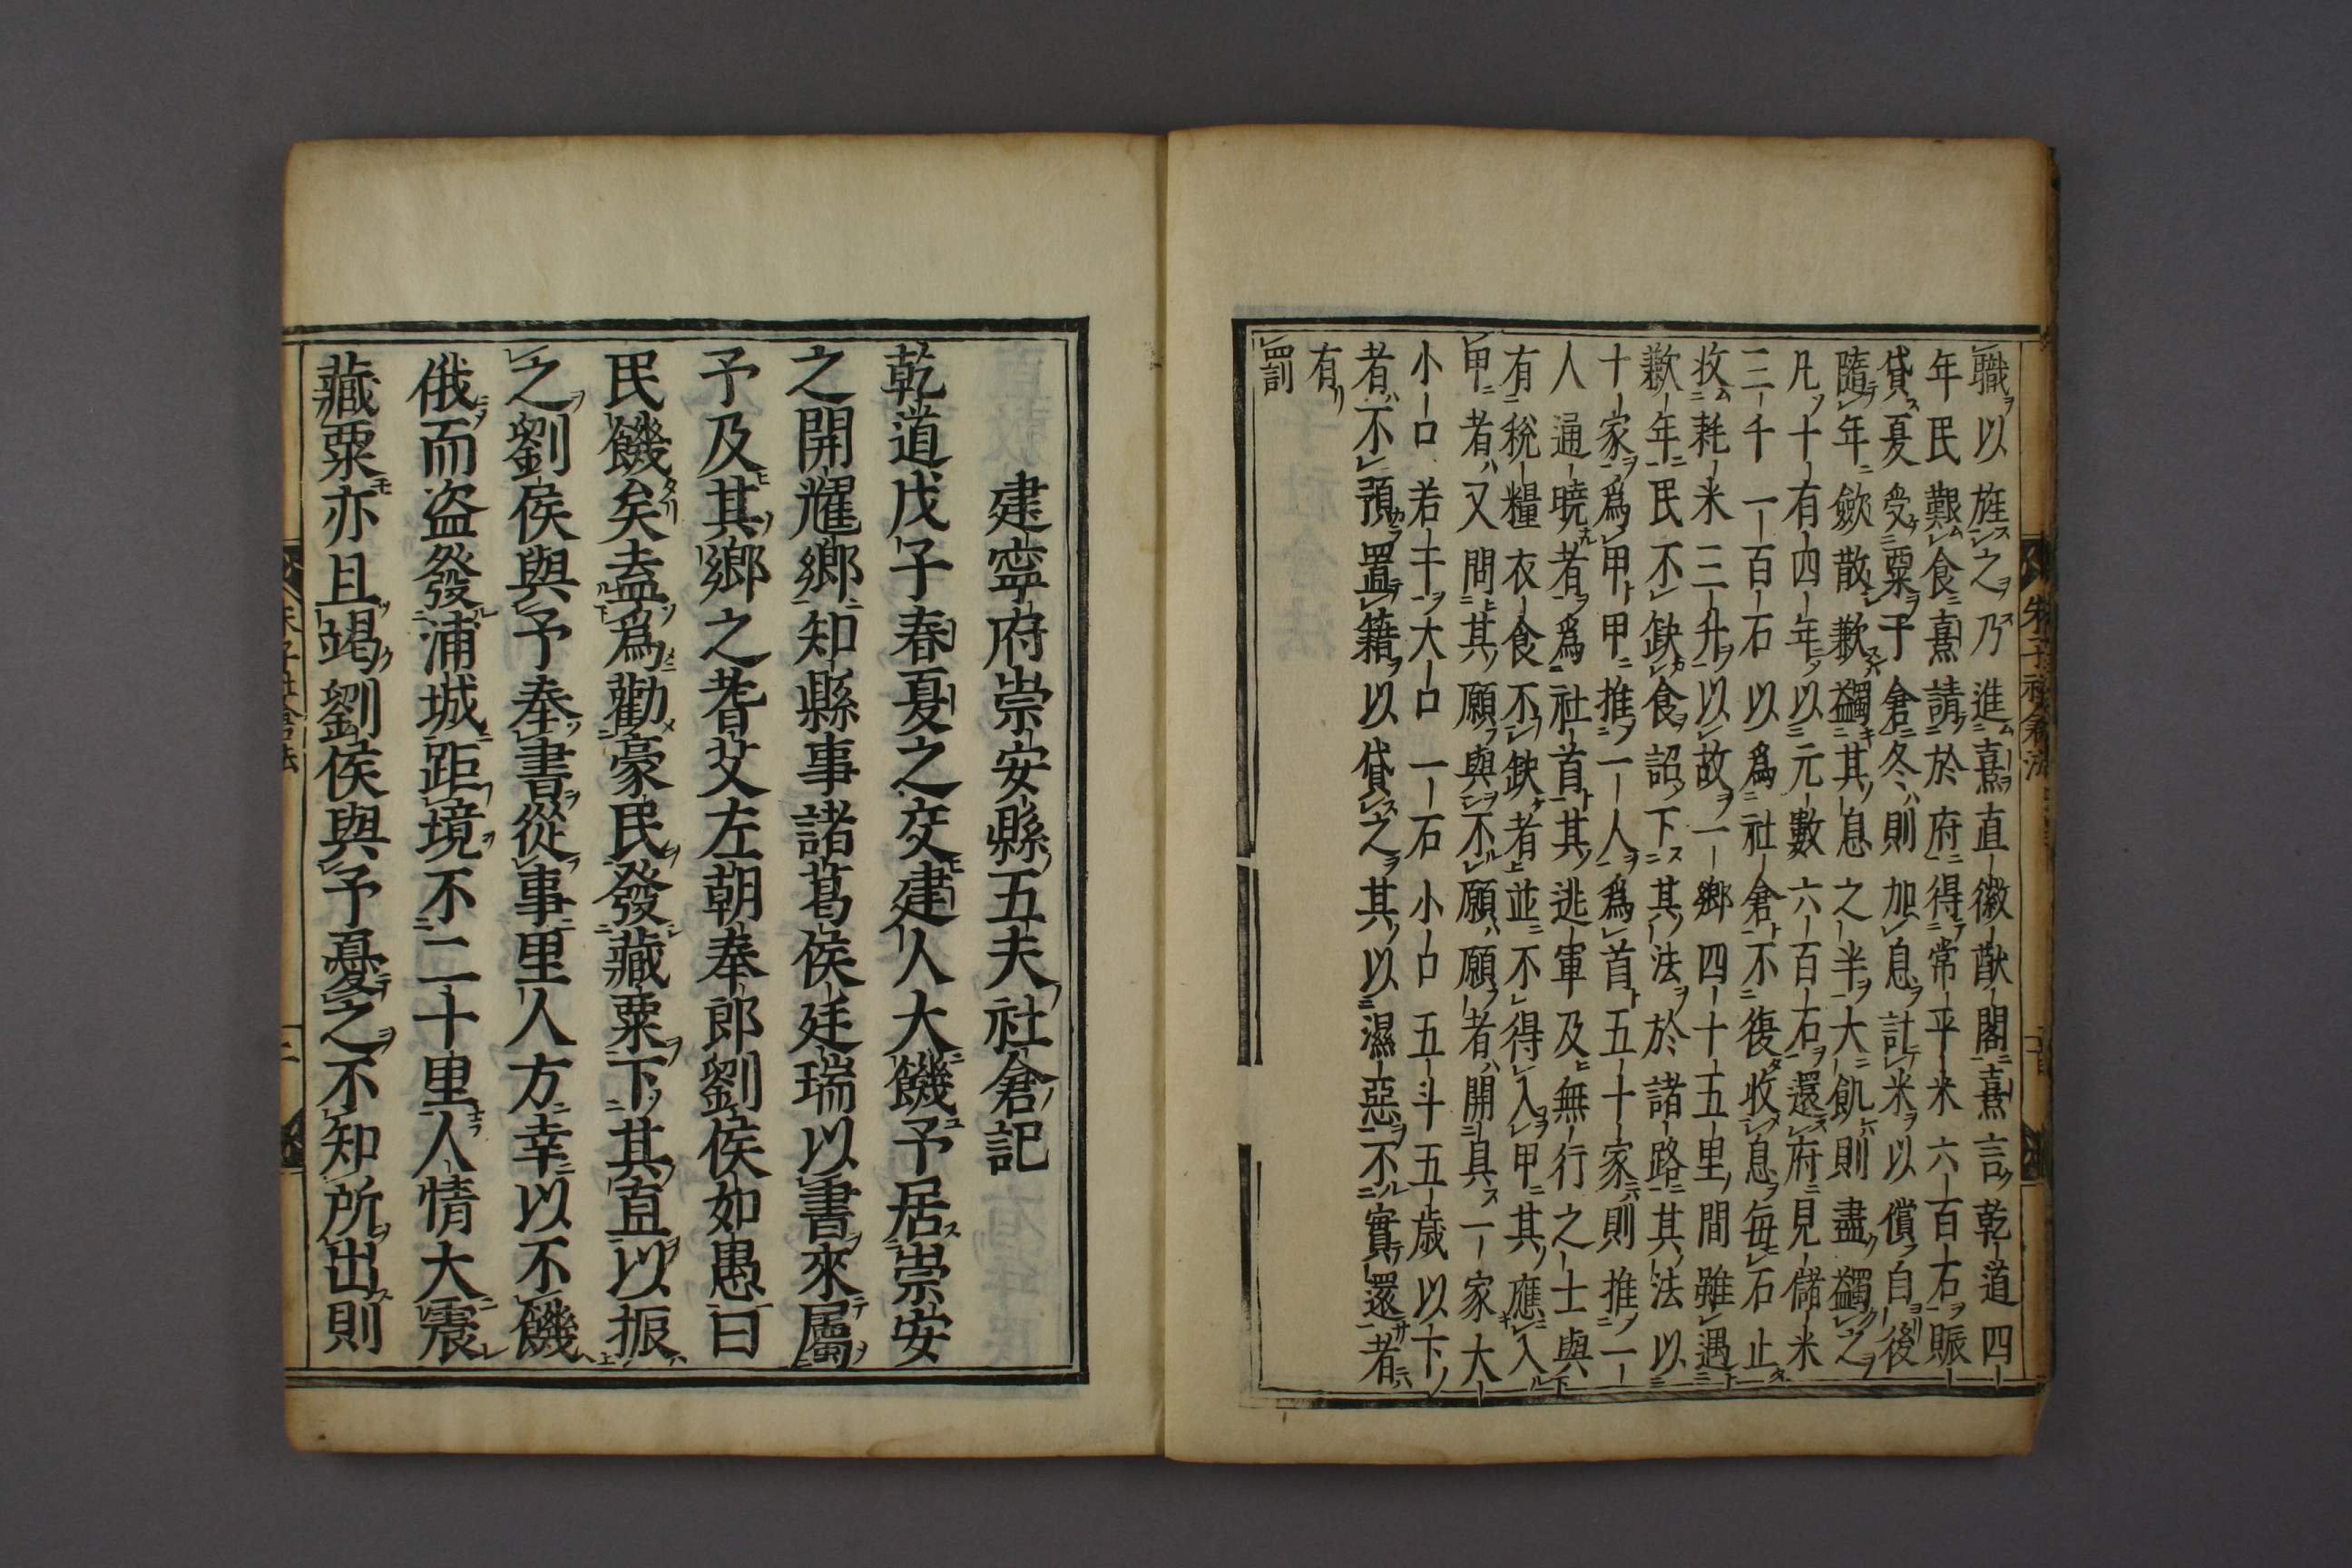 職以旌之乃進熹直徽猷閣熹言乾道四
年民艱食熹請於府得常平米六百石賑
貸夏受粟于倉冬則加息計米以償自後
隨年歛散歉蠲其息之半大飢則盡蠲之
凡十有四年以元數六百石還府見儲米
三千一百石以爲社倉不復收息毎石止
收耗米三升以故一鄉四十五里間雖遇
歉年民不缺食詔下其法於諸路其法以
十家爲甲甲推一人爲首五十家則推一
人通曉者爲社首其逃軍及無行之士與
有稅糧衣食不缺者並不得入甲其應入
甲者又問其願與不願願者開具一家大
小口若干大口一石小口五斗五歲以下
者不預置籍以貸之其以濕惡不實還者
有
罰
建寧府崇安縣五夫社倉記
乾道戊子春夏之交建人大饑予居崇安
之開耀鄉知縣事諸葛侯廷瑞以書來屬
予及其鄉之耆艾左朝奉郎劉侯如愚曰
民饑矣盍爲勸豪民發藏粟下其直以振
之劉侯與予奉書從事里人方幸以不饑
俄而盗發浦城距境不二十里人情大震
藏粟亦且竭劉侯與予憂之不知所出則
朱子社倉法